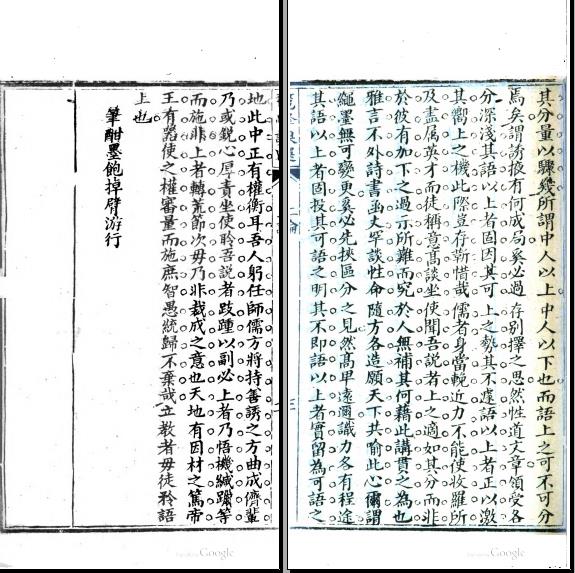 其分量以驟幾所謂中人以上中人以下也而語上之可不可分
焉矣謂誘掖有何成局奚必過存別擇之思然性道文章領受各
分深淺其語以上者固因其可上之勢其不遽語以上者正以激
其嚮上之機此際豈存靳惜哉儒者身當輓近力不能使收羅所
及盡屬英才而徒稱竟舊談坐使聞吾說者上之適如其分而非
於彼有加下之過示所難而究於人無補其何藉此講貫之為也
雅言不外詩書函丈罕談性命隨方各造願天下共喻此心爾謂
繩墨無可變更奚必先挾區分之見然高卑遠邇識力各有程途
其語以上者固投其可語之明其不即語以上者實留為可語之
地此中正有權衡耳吾人躬任師儒方將持善誘之方曲成儕輩
乃或銳心厚責坐使聆吾說者跂踵以副必上者乃悟機緘躐等
而施非上者轉荒節次毋乃非裁成之意也天地有因材之篤帝
王有器使之權審量而施庶智愚統歸不棄哉立教者毋徒矜語
上也
筆酣墨飽掉臂游行
Google
Google